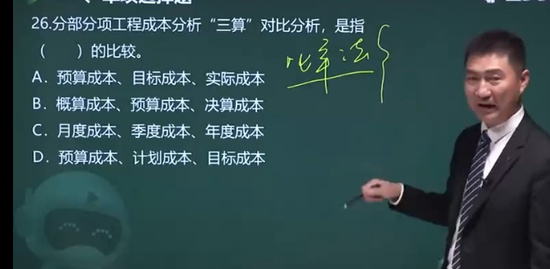 26.分部分项工程成本分析“三算”对比分析，是指
（　　）的比较。
A．预算成本、目标成本、实际成本
B．概算成本、预算成本、决算成本
C．月度成本、季度成本、年度成本
D．预算成本、计划成本、目标成本
比率法